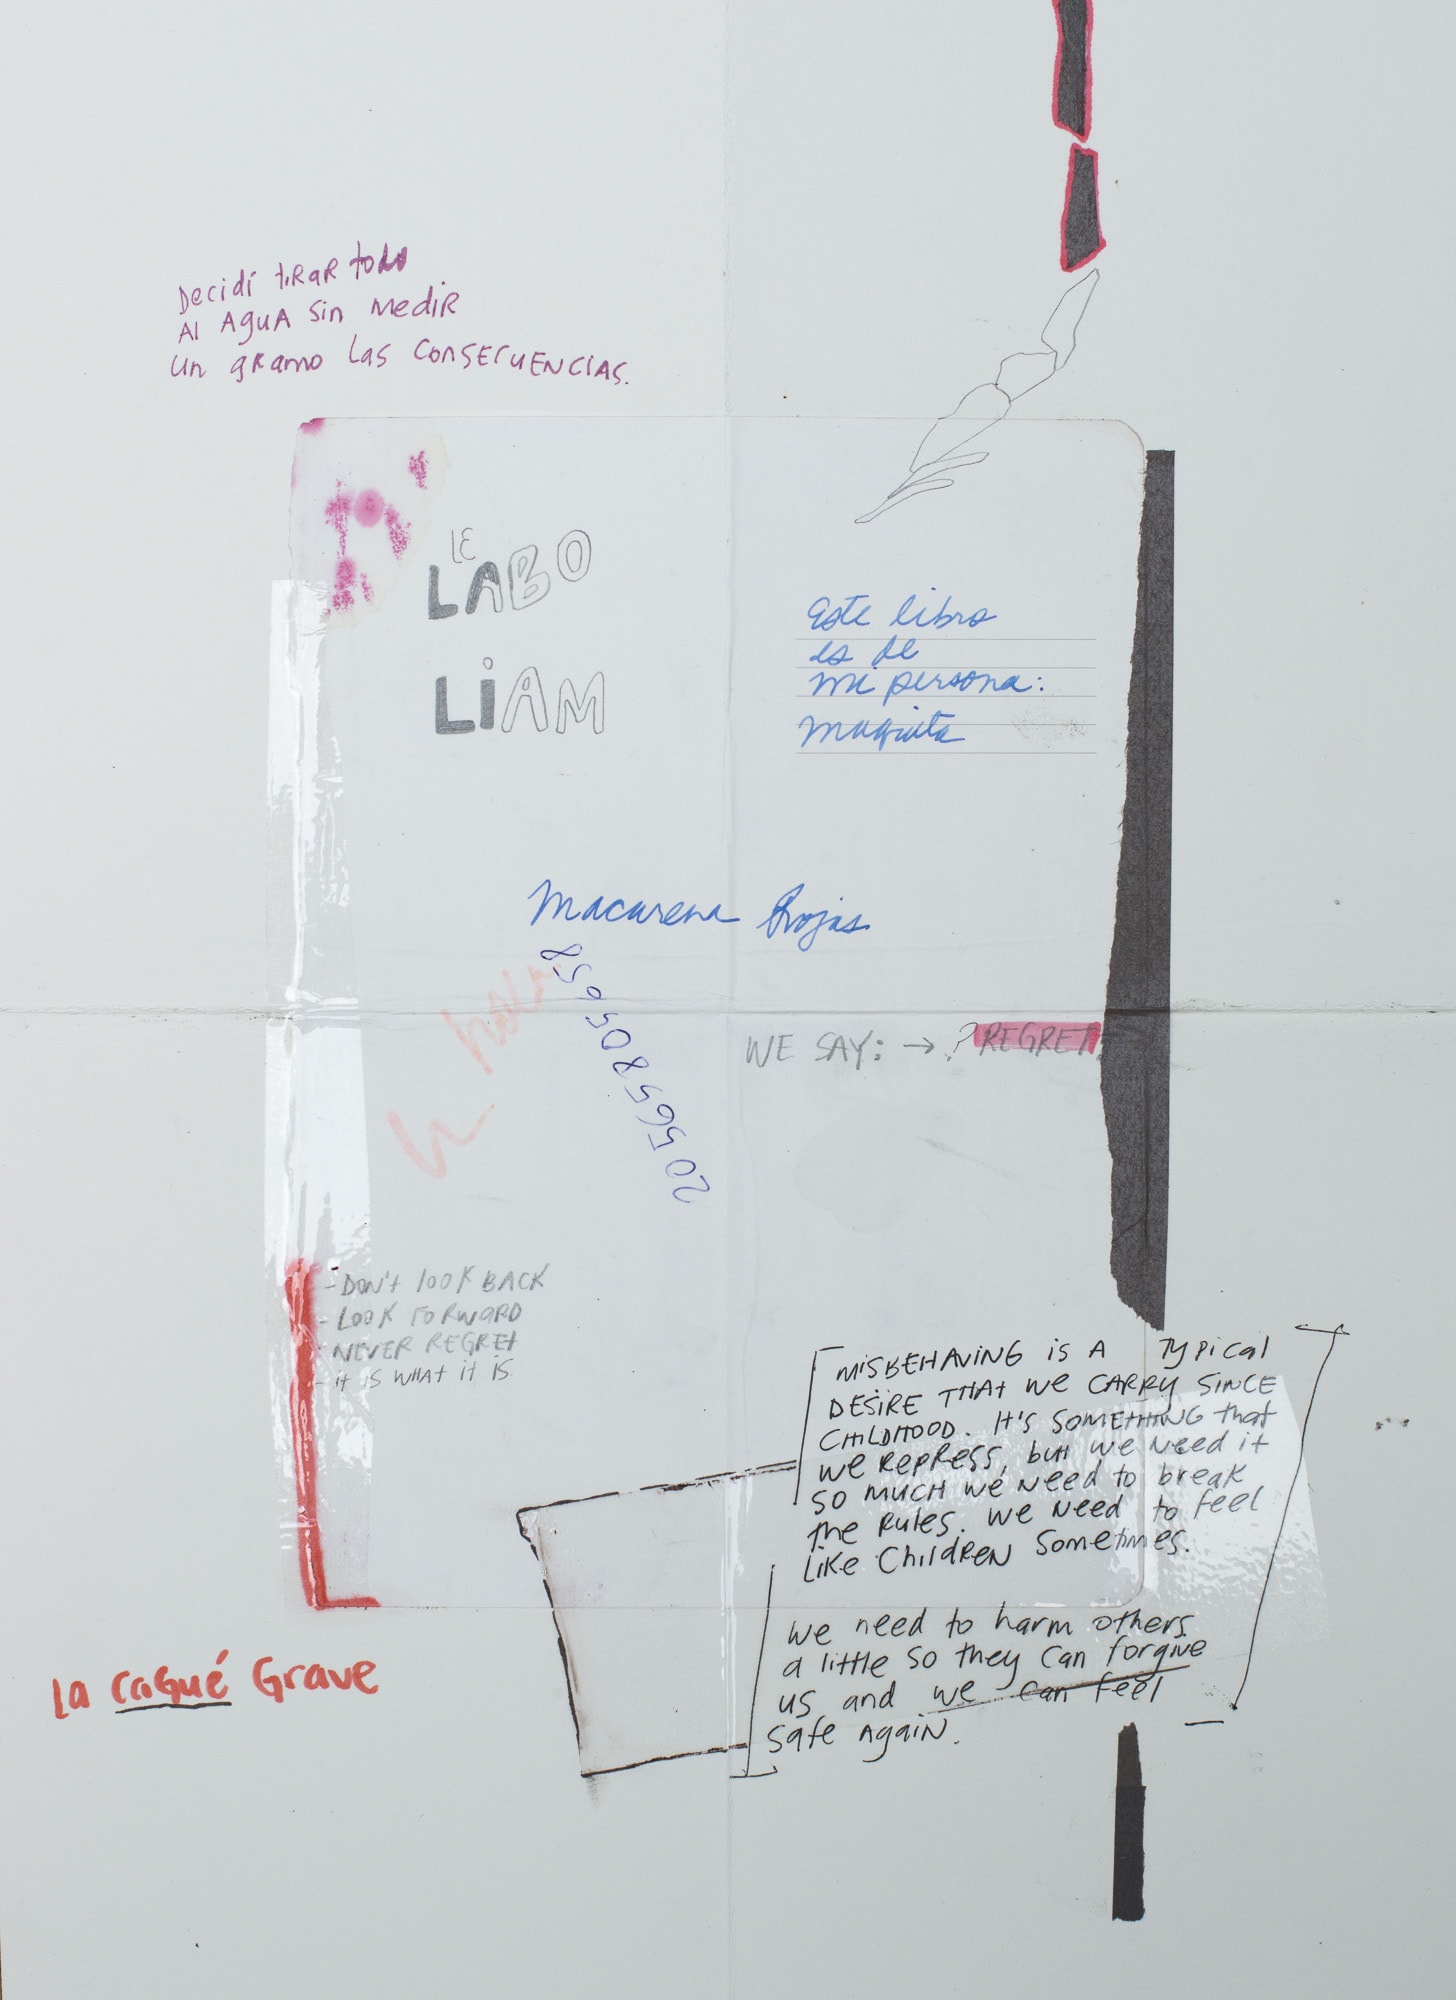 Decidí tirar todo
Al Agua sin medir
un gramo las consecuencias.
LE
LABO
LIAM
Este libro
es de
mi persona:
Maquita
Macarena Rojas
20565805658
WE SAY: → ? REGRET
- DON'T LOOK BACK
- LOOK FORWARD
- NEVER REGRET
- it is WHAT it is
MISBEHAVING is A typical
DESIRE THAT we CARRY SINCE
CHILDHOOD. It's SOMETHING that
we REPRESS, but we NEED it
SO MUCH we NEED to break
the RULES. We NEED to feel
Like Children Sometimes.
We need to harm others
a little so they can forgive
us and we can feel
safe again.
La cagué Grave